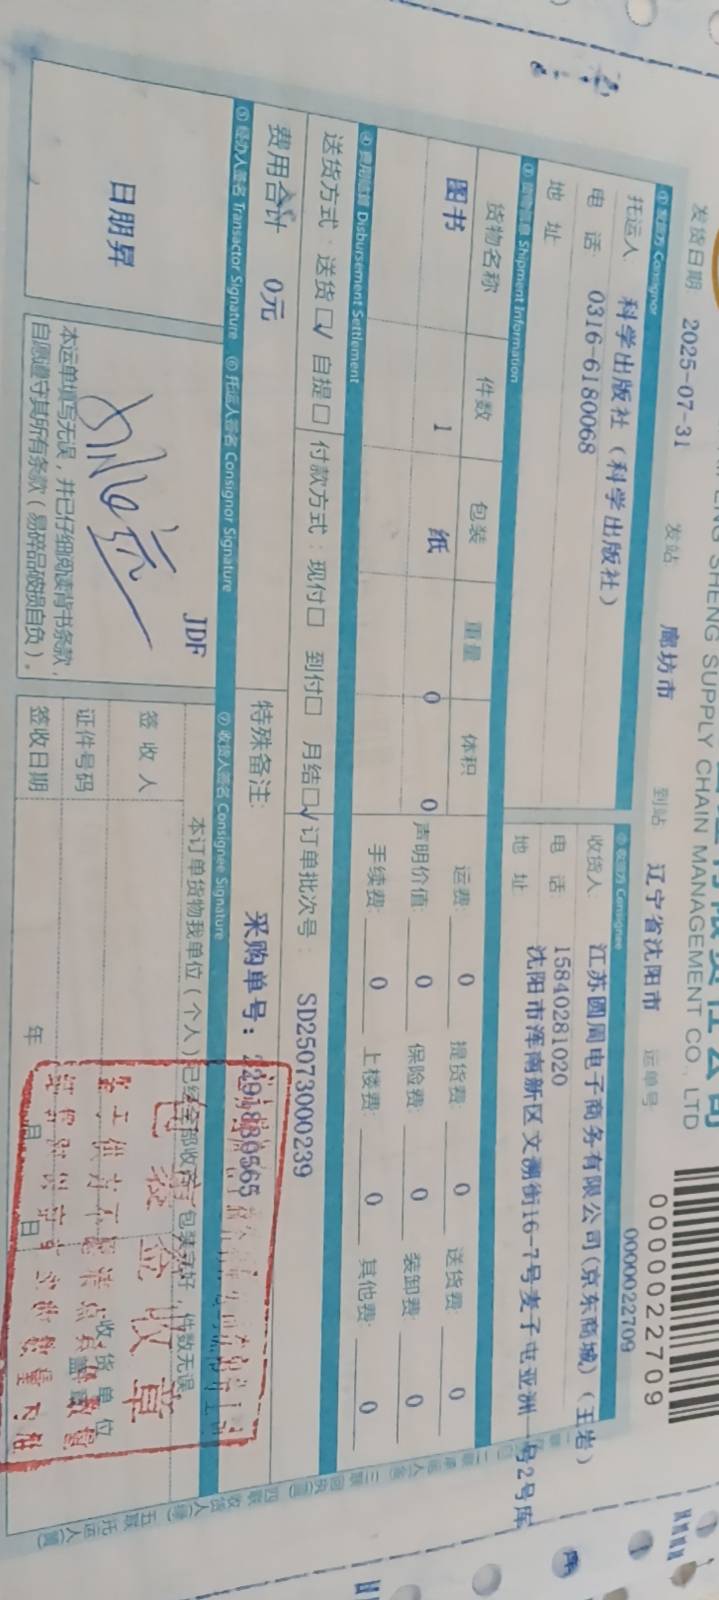 SHENG SUPPLY CHAIN MANAGEMENT CO., LTD
0000022709
发货日期 2025-07-31 发站 廊坊市 到站 辽宁省沈阳市 运单号 0000022709
① 发货方 Consignor ② 收货方 Consignee
托运人 科学出版社（科学出版社） 收货人 江苏圆周电子商务有限公司(京东商城)（王岩）
电 话 0316-6180068 电 话 15840281020
地 址 地 址 沈阳市浑南新区文溯街16-7号麦子屯亚洲一号2号库
③ 货物信息 Shipment Information
货物名称 件数 包装 重量 体积 运费: 0 提货费: 0 送货费: 0
图书 1 纸 0 0 声明价值: 0 保险费: 0 装卸费: 0
手续费: 0 上楼费: 0 其他费: 0
④ 费用结算 Disbursement Settlement
送货方式：送货☑ 自提□ 付款方式：现付□ 到付□ 月结☑ 订单批次号： SD25073000239
费用合计 0元 特殊备注: 采购单号:
⑤ 经办人签名 Transactor Signature ⑥ 托运人签名 Consignor Signature ⑦ 收货人签名 Consignee Signature
日朋昇
JDF
本运单填写无误，并已仔细阅读背书条款，
自愿遵守其所有条款（易碎品破损自负）。
本订单货物我单位（个人）已经全部收齐，包装完好，件数无误
签 收 人
证件号码 收货单位
签收日期 年 月 日 盖章